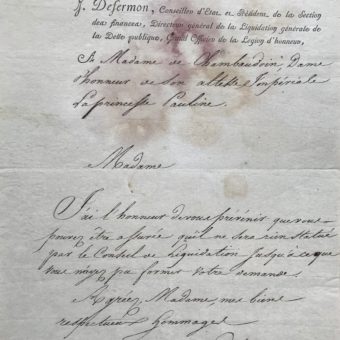 J. Defermon, Conseiller d'Etat et Président de la Section
des finances, Directeur général de la Liquidation générale de
la Dette publique, Grand Officier de la Légion d'honneur,
A Madame de Chambaudoin Dame
d'honneur de son altesse Impériale
La princesse Pauline.
Madame
J'ai l'honneur de vous prévenir que vous
pouvez être assurée qu'il ne sera rien statué
par le Conseil de Liquidation jusqu'à ce que
vous ayez pu former votre demande.
Agréez, Madame, mes biens
respectueux hommages